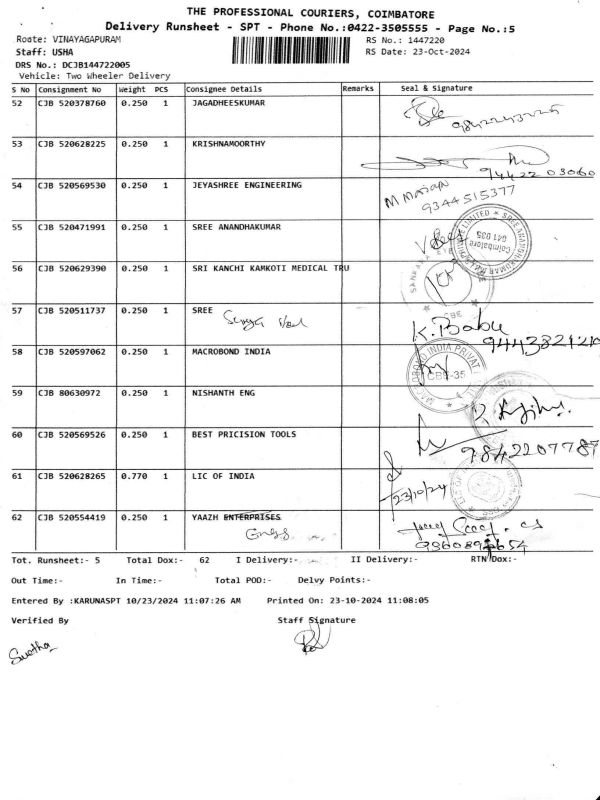 THE PROFESSIONAL COURIERS, COIMBATORE
Delivery Runsheet - SPT - Phone No.:0422-3505555 - Page No.:5
Route: VINAYAGAPURAM RS No.: 1447220
Staff: USHA RS Date: 23-Oct-2024
DRS No.: DCJB144722005
Vehicle: Two Wheeler Delivery
S No Consignment No Weight PCS Consignee Details Remarks Seal & Signature
52 CJB 520378760 0.250 1 JAGADHEESKUMAR
53 CJB 520628225 0.250 1 KRISHNAMOORTHY
9442203060
54 CJB 520569530 0.250 1 JEYASHREE ENGINEERING
9344515377
55 CJB 520471991 0.250 1 SREE ANANDHAKUMAR
Coimbatore
641 035
56 CJB 520629390 0.250 1 SRI KANCHI KAMKOTI MEDICAL TRU
57 CJB 520511737 0.250 1 SREE
K. Babu
58 CJB 520597062 0.250 1 MACROBOND INDIA
MACROBOND INDIA PRIVAT
CBE-35
59 CJB 80630972 0.250 1 NISHANTH ENG
60 CJB 520569526 0.250 1 BEST PRICISION TOOLS
9842207787
61 CJB 520628265 0.770 1 LIC OF INDIA
23/10/24
62 CJB 520554419 0.250 1 YAAZH ENTERPRISES
Tot. Runsheet:- 5 Total Dox:- 62 I Delivery:- II Delivery:- RTN Dox:-
Out Time:- In Time:- Total POD:- Delvy Points:-
Entered By :KARUNASPT 10/23/2024 11:07:26 AM Printed On: 23-10-2024 11:08:05
Verified By Staff Signature
Swatha